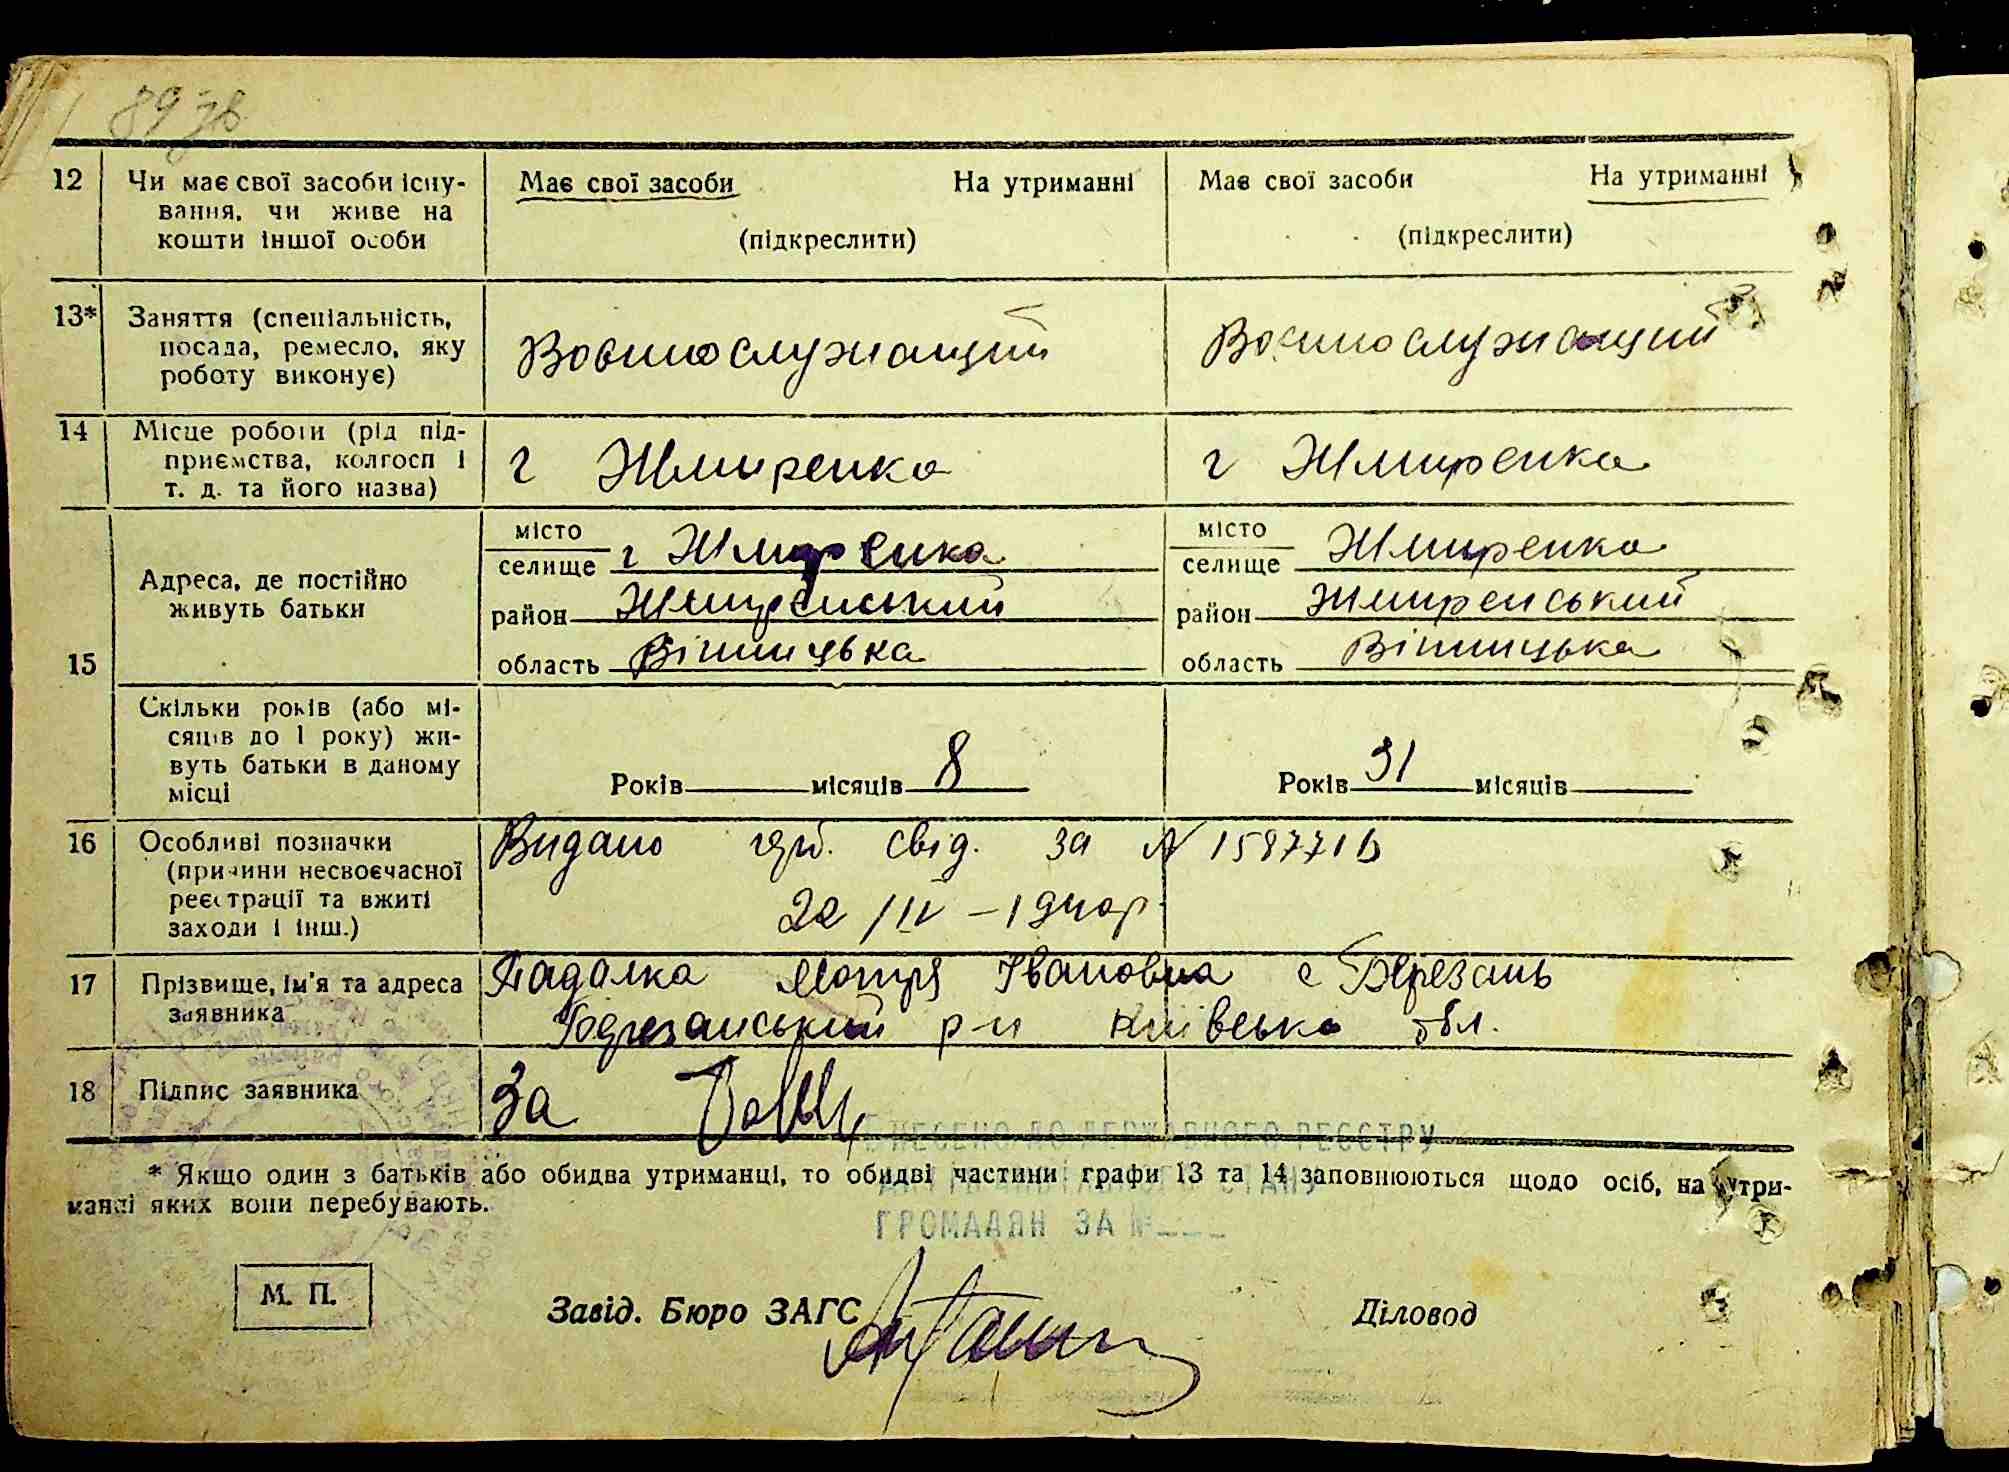 89 зв
12 Чи має свої засоби існу- Має свої засоби На утриманні Має свої засоби На утриманні
вання, чи живе на
кошти іншої особи (підкреслити) (підкреслити)
13* Заняття (спеціальність,
посада, ремесло, яку Военнослужащий Военнослужащий
роботу виконує)
14 Місце роботи (рід під-
приємства, колгосп і г Жмиренка г Жмиренка
т. д. та його назва)
місто місто
селище г Жмиренка селище Жмиренка
Адреса, де постійно
живуть батьки район Жмиренський район Жмиренський
15 область Вінницька область Вінницька
Скільки років (або мі-
сяців до 1 року) жи-
вуть батьки в даному Років місяців 8 Років 31 місяців
місці
16 Особливі позначки Видано свід. за N 158771
(причини несвоєчасної
реєстрації та вжиті 22/IV – 1940р
заходи і інш.)
17 Прізвище, ім'я та адреса Падалка Мотря Івановна с Березань
заявника Березанський р-н Київська обл.
18 Підпис заявника За
ВНЕСЕНО ДО ДЕРЖАВНОГО РЕЄСТРУ
* Якщо один з батьків або обидва утриманці, то обидві частини графи 13 та 14 заповнюються щодо осіб, на утри-
манні яких вони перебувають.
ГРОМАДЯН ЗА №
М. П. Завід. Бюро ЗАГС Діловод